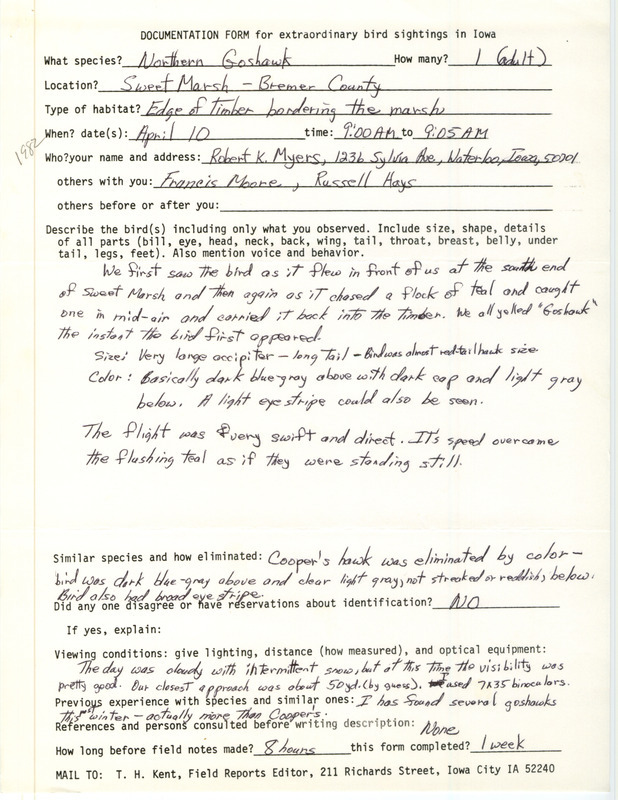 DOCUMENTATION FORM for extraordinary bird sightings in Iowa
What species? Northern Goshawk How many? 1 (adult)
Location? Sweet Marsh - Bremer County
Type of habitat? Edge of timber bordering the marsh
When? date(s): April 10 time: 9:00 AM to 9:05 AM
1982
Who?your name and address: Robert K. Myers, 1236 Sylvia Ave., Waterloo, Iowa, 50701
others with you: Francis Moore, Russell Hays
others before or after you:
Describe the bird(s) including only what you observed. Include size, shape, details
of all parts (bill, eye, head, neck, back, wing, tail, throat, breast, belly, under
tail, legs, feet). Also mention voice and behavior.
We first saw the bird as it flew in front of us at the south end
of Sweet Marsh and then again as it chased a flock of teal and caught
one in mid-air and carried it back into the timber. We all yelled "Goshawk"
the instant the bird first appeared.
Size: Very large accipiter - long Tail - Bird was almost red-tail hawk size
Color: Basically dark blue-gray above with dark cap and light gray
below. A light eye stripe could also be seen.
The flight was very swift and direct. It's speed overcame
the flushing teal as if they were standing still.
Similar species and how eliminated: Cooper's hawk was eliminated by color-
bird was dark blue-gray above and clear light gray, not streaked or reddish, below.
Bird also had broad eye stripe.
Did any one disagree or have reservations about identification? NO
If yes, explain:
Viewing conditions: give lighting, distance (how measured), and optical equipment:
The day was cloudy with intermittent snow, but at this time the visibility was
pretty good. Our closest approach was about 50 yd. (by guess). I used 7x35 binoculars.
Previous experience with species and similar ones: I has found several goshawks
this winter - actually more than Cooper's.
References and persons consulted before writing description: None
How long before field notes made? 8 hours this form completed? 1 week
MAIL TO: T. H. Kent, Field Reports Editor, 211 Richards Street, Iowa City IA 52240